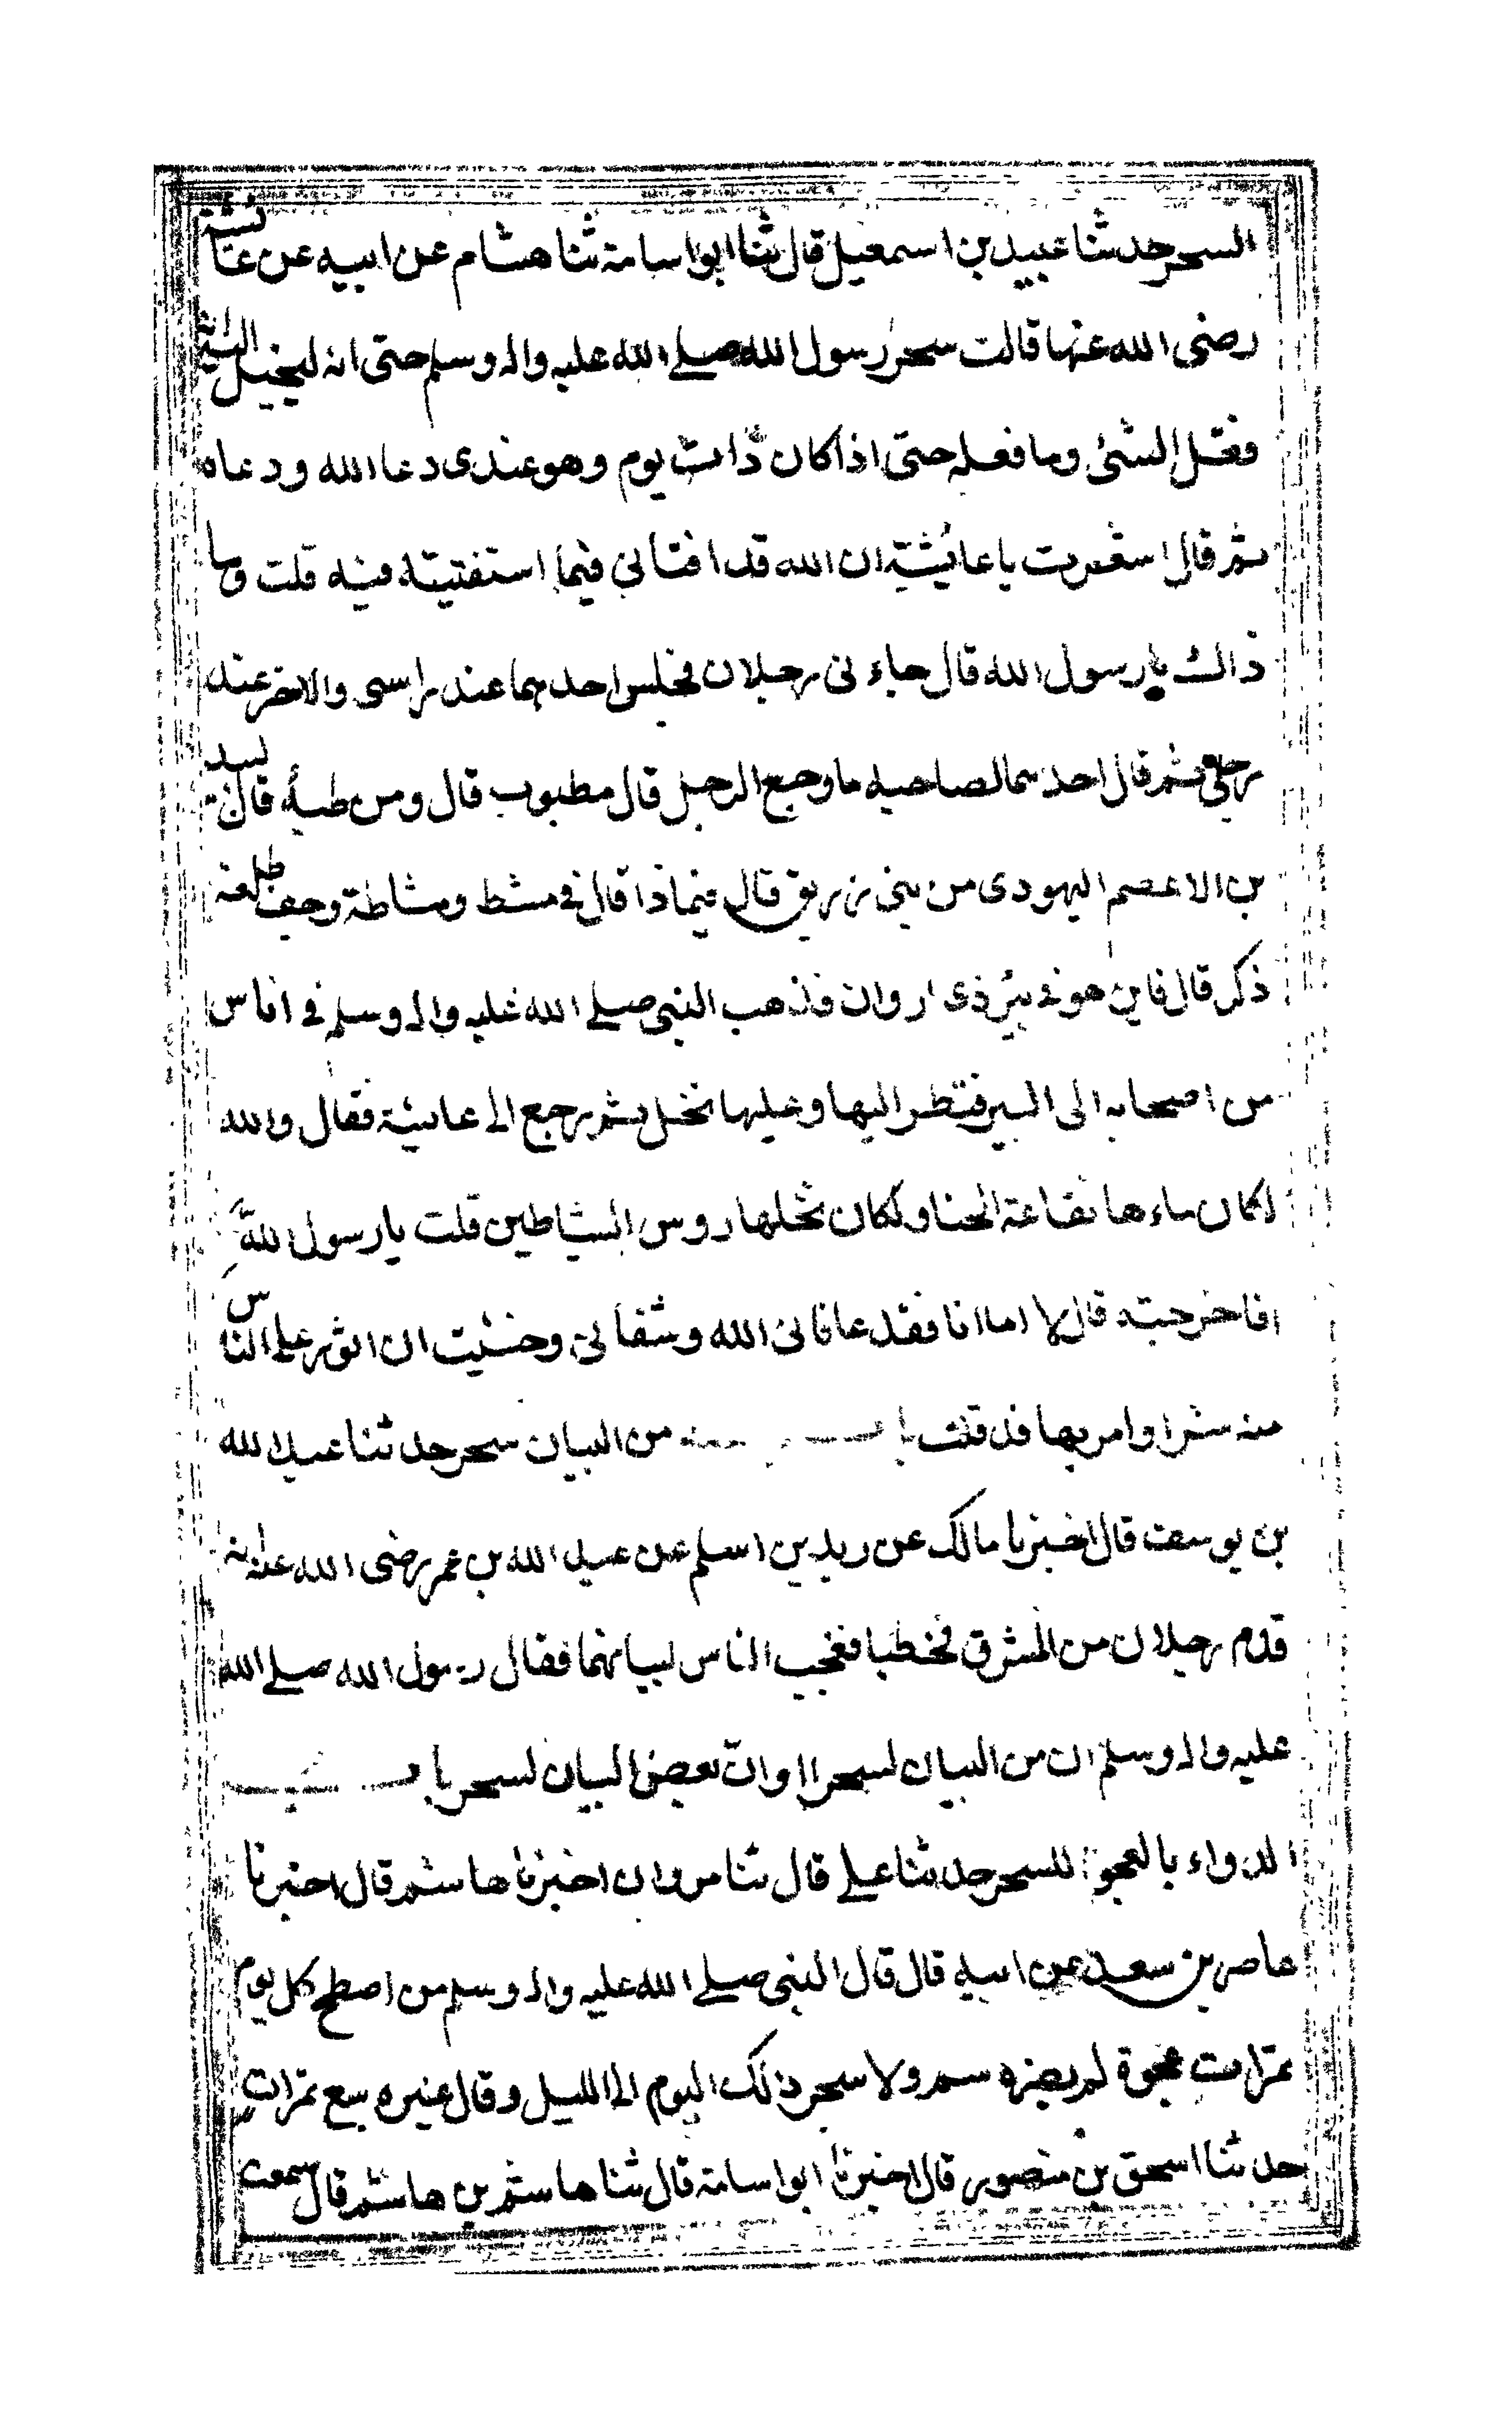 السحر حدثنا عبيد بن اسمعيل قال ثنا ابو اسامة ثنا هشام عن ابيه عن عائشة
رضى الله عنها قالت سحر رسول الله صلے الله عليه واله وسلم حتى انه ليخيل اليه انه
فعل الشئ وما فعله حتى اذا كان ذات يوم وهو عندى دعا الله ودعاه
ثم قال اشعرت يا عايشة ان الله قد افتانى فيما استفتيته فيه قلت وما
ذالك يا رسول الله قال جاءنى رجلان فجلس احدهما عند راسى والاخر عند
رجلى ثم قال احدهما لصاحبه ما وجع الرجل قال مطبوب قال ومن طبه قال لبيد
بن الاعصم اليهودى من بنى زريق قال فيماذا قال فى مشط ومشاطة وجف طلعة
ذكر قال فاين هو فى بئر ذى اروان فذهب النبى صلے الله عليه واله وسلم فى اناس
من اصحابه الى البير فنظر اليها وعليها نخل ثم رجع الى عايشة فقال والله
لكان ماءها نقاعة الحنا ولكان نخلها روس الشياطين قلت يا رسول الله
افاخرجته قال لا اما انا فقد عافانى الله وشفانى وخشيت ان اثور على الناس
منه شرا وامر بها فدفنت باب من البيان سحر حدثنا عبد الله
بن يوسف قال اخبرنا مالك عن زيد بن اسلم عن عبد الله بن عمر رضى الله عنه انه
قدم رجلان من المشرق فخطبا فعجب الناس لبيانهما فقال رسول الله صلے الله
عليه واله وسلم ان من البيان لسحرا او ان بعض البيان لسحر باب
الدواء بالعجوة للسحر حدثنا علے قال ثنا مروان اخبرنا هاشم قال اخبرنا
عامر بن سعد عن ابيه قال قال النبى صلے الله عليه واله وسلم من اصطبح كل يوم
تمرات عجوة لم يضره سم ولا سحر ذلك اليوم الى الليل وقال غيره سبع تمرات
حدثنا اسحق بن منصور قال اخبرنا ابو اسامة قال ثنا هاشم بن هاشم قال سمعت